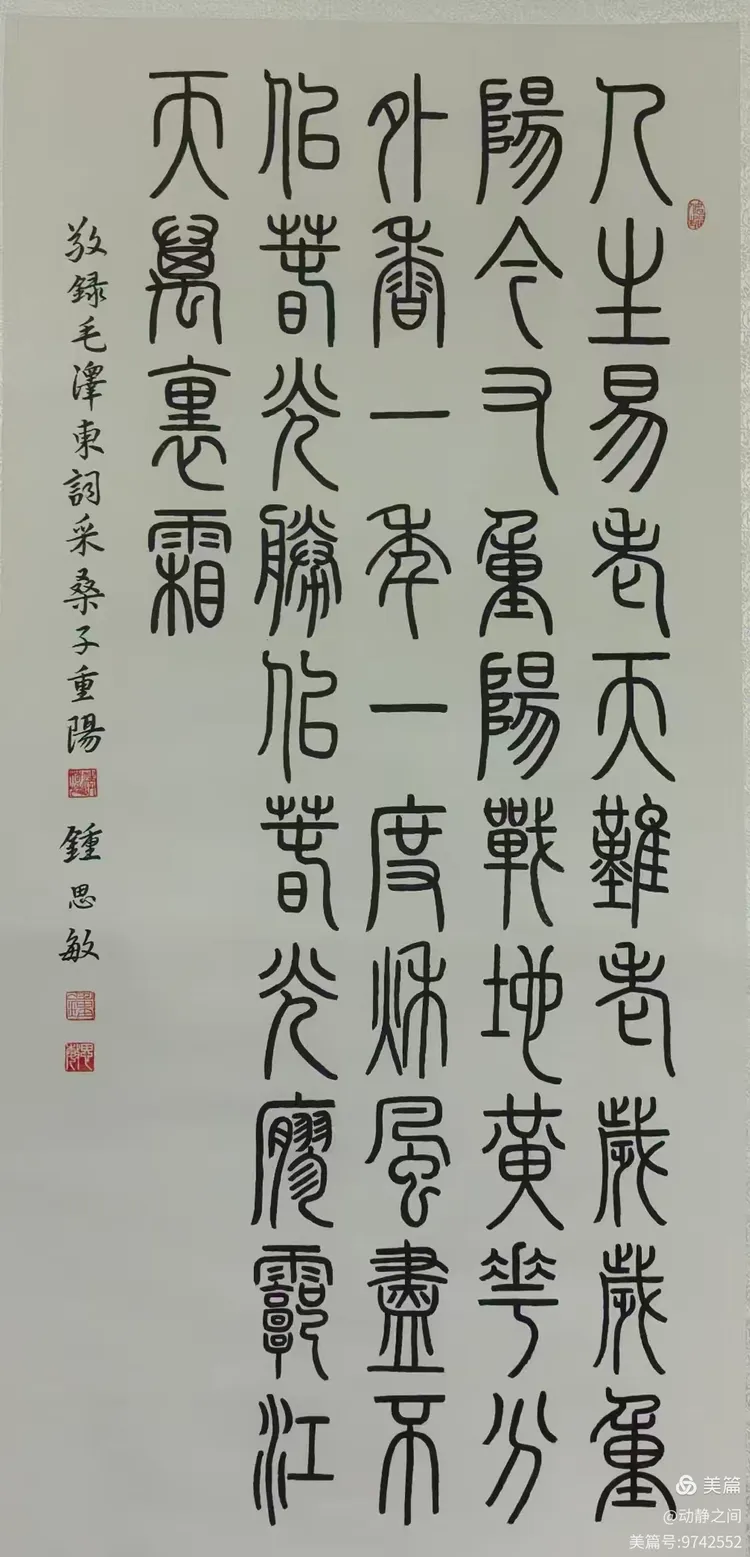 人生易老天難老歲歲重
陽今又重陽戰地黃花分
外香一年一度秋風盡不
似春光勝似春光廖霩江
天萬裏霜
敬録毛澤東詞采桑子重陽 鍾思敏
美篇
@动静之间
美篇号:9742552